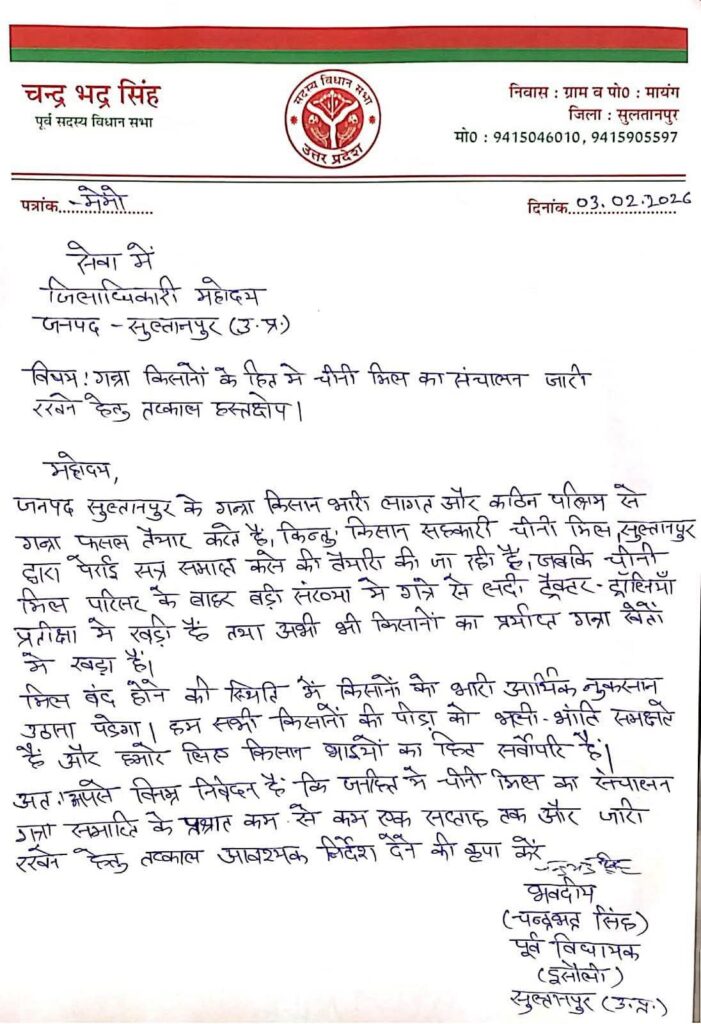 चन्द्र भद्र सिंह
पूर्व सदस्य विधान सभा
सदस्य विधान सभा
उत्तर प्रदेश
निवास : ग्राम व पो० : मायंग
जिला : सुलतानपुर
मो० : 9415046010, 9415905597
पत्रांक...मेमो...
दिनांक...03.02.2026
सेवा में
जिलाधिकारी महोदय
जनपद - सुल्तानपुर (उ.प्र.)
विषय: गन्ना किसानों के हित मे चीनी मिल का संचालन जारी
रखने हेतु तत्काल हस्तक्षेप।
महोदय,
जनपद सुल्तानपुर के गन्ना किसान भारी लागत और कठिन परिश्रम से
गन्ना फसल तैयार करते हैं, किन्तु किसान सहकारी चीनी मिल, सुल्तानपुर
द्वारा पेराई सत्र समाप्त करने की तैयारी की जा रही है, जबकि चीनी
मिल परिसर के बाहर बड़ी संख्या मे गन्ने से लदी ट्रैक्टर-ट्रॉलियाँ
प्रतीक्षा मे खड़ी हैं तथा अभी भी किसानों का पर्याप्त गन्ना खेतों
मे खड़ा हैं।
मिल बंद होने की स्थिति में किसानों को भारी आर्थिक नुकसान
उठाना पडेगा। हम सभी किसानों की पीड़ा को भली-भांति समझते
हैं और हमारे लिए किसान भाइयों का हित सर्वोपरि है।
अतः आपसे विनम्र निवेदन हैं कि जनहित मे चीनी मिल का संचालन
गन्ना समाप्ति के पश्चात कम से कम एक सप्ताह तक और जारी
रखने हेतु तत्काल आवश्यक निर्देश देने की कृपा करें
भवदीय
(चन्द्रभद्र सिंह)
पूर्व विधायक
(इसौली)
सुल्तानपुर (उ.प्र.)